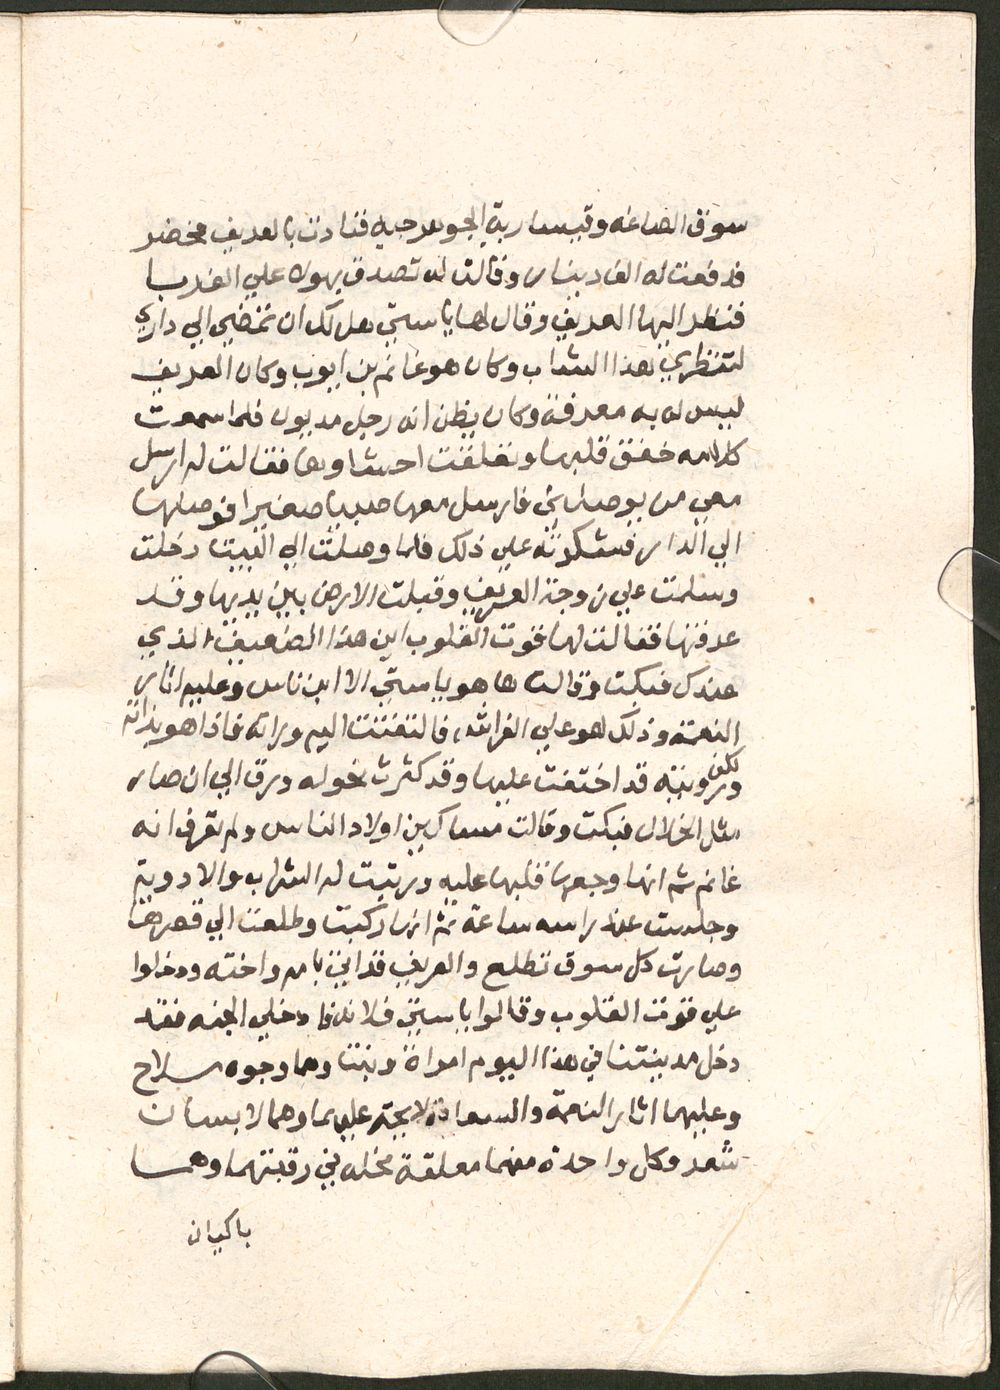 سوق الصاغه وقيسارية الجوهرجيه فنادت بالعريف فحضر
فدفعت له الف دينار وقالت له تصدق بهولا علي الغربا
فنظر اليها العريف وقال لها يا ستي هل لك ان تمضي الي داري
لتنظري هذا الشاب وكان هو غانم بن ايوب وكان العريف
ليس له به معرفة وكان يظن انه رجل مديون فلما سمعت
كلامه خفق قلبها وتقلقت احشاوها فقالت له ارسل
معي من يوصلني فارسل معها صبيا صغيرا فوصلها
الي الدار فشكرته علي ذلك فلما وصلت الي البيت دخلت
وسلمت علي زوجة العريف وقبلت الارض بين يديها وقد
عرفتها فقالت لها قوت القلوب اين هذا الضعيف الذي
عندك فبكت وقالت ها هو يا ستي الا ابن ناس وعليه اثار
النعمة وذلك هو علي الفراش فالتفتت اليه وراته فاذا هو بذاته
ولكن رويته قد اختفت عليها وقد كثرت نحوله ورق الي ان صار
مثل الخلال فبكت وقالت مساكين اولاد الناس ولم تعرف انه
غانم ثم انها وجعها قلبها عليه ورتبت له الشراب والادوية
وجلست عند راسه ساعة ثم انها ركبت وطلعت الي قصرها
وصارت كل سوق تطلع والعريف قد اتي بامه واخته ودخلوا
علي قوت القلوب وقالوا يا ستي فقد
دخل مدينتنا في هذا اليوم امراة وبنت وهما وجوه ملاح
وعليهما اثار النعمة والسعادة لايحة عليهما وهما لابسان
شعر وكل واحدة منهما معلقة مخله في رقبتهما وهما
باكيان